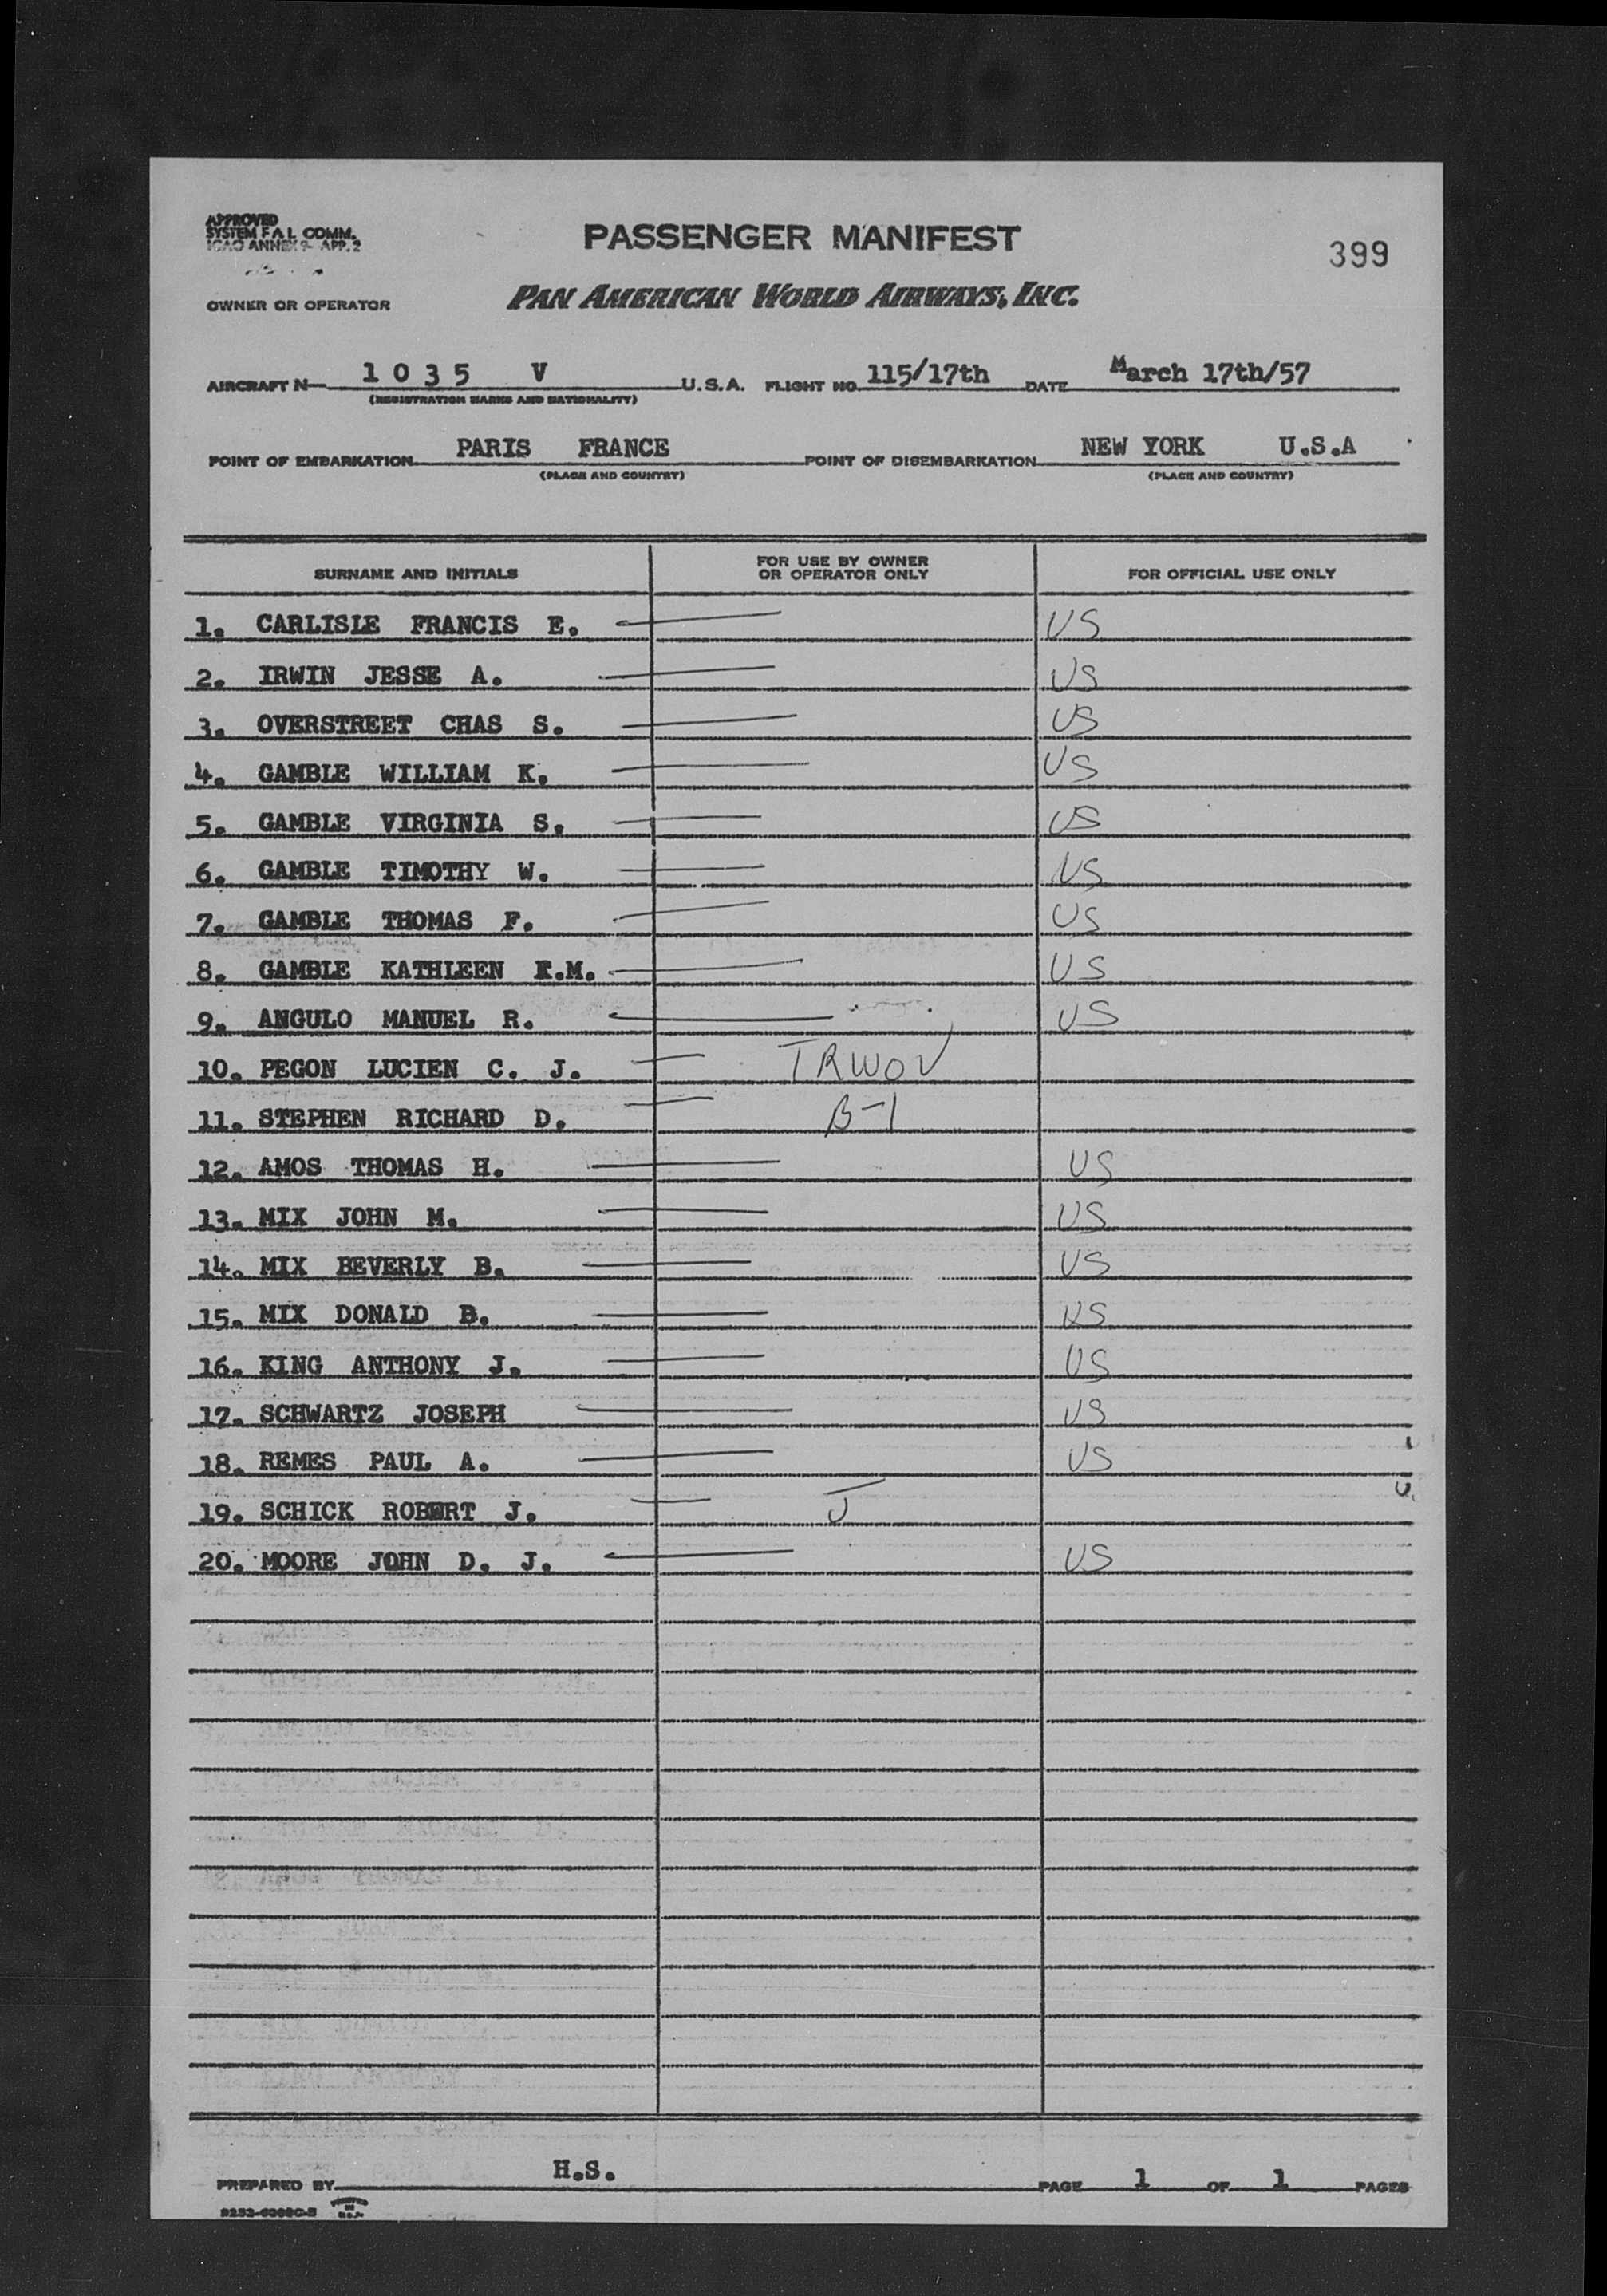 APPROVED
SYSTEM F A L COMM.
ICAO ANNEX 9- APP. 2
PASSENGER MANIFEST
399
OWNER OR OPERATOR
PAN AMERICAN WORLD AIRWAYS, INC.
AIRCRAFT N- 1 0 3 5 V U.S.A. FLIGHT NO. 115/17th DATE March 17th/57
(REGISTRATION MARKS AND NATIONALITY)
POINT OF EMBARKATION PARIS FRANCE POINT OF DISEMBARKATION NEW YORK U.S.A
(PLACE AND COUNTRY) (PLACE AND COUNTRY)
SURNAME AND INITIALS FOR USE BY OWNER OR OPERATOR ONLY FOR OFFICIAL USE ONLY
1. CARLISLE FRANCIS E. US
2. IRWIN JESSE A. US
3. OVERSTREET CHAS S. US
4. GAMBLE WILLIAM K. US
5. GAMBLE VIRGINIA S. US
6. GAMBLE TIMOTHY W. US
7. GAMBLE THOMAS F. US
8. GAMBLE KATHLEEN .M. US
9. ANGULO MANUEL R. US
10. PEGON LUCIEN C. J. TRWOV
11. STEPHEN RICHARD D. B-1
12. AMOS THOMAS H. US
13. MIX JOHN M. US
14. MIX BEVERLY B. US
15. MIX DONALD B. US
16. KING ANTHONY J. US
17. SCHWARTZ JOSEPH US
18. REMES PAUL A. US
19. SCHICK ROBERT J. J
20. MOORE JOHN D. J. US
PREPARED BY H.S. PAGE 1 OF 1 PAGES